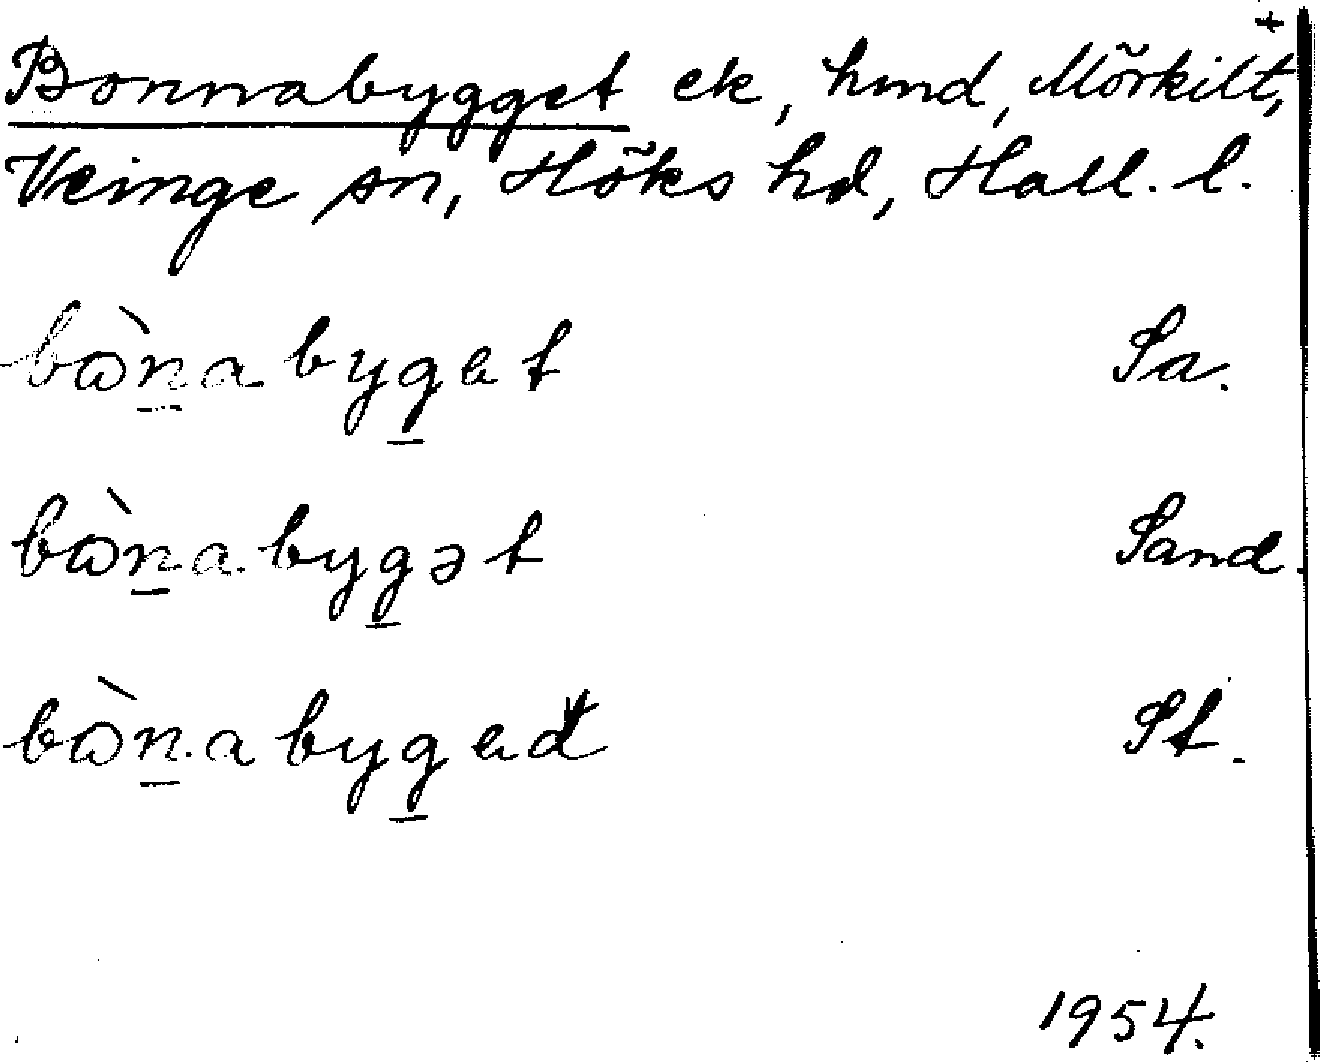 +
Bonnabygget ek, hmd, Mõrkilt,
Veinge sn, Hõks hd, Hall. l.
bὼn̲abyg̲et Sa.
bὼn̲abyg̲ət Sand.
bὼn̲abyg̲ed St.
1954.